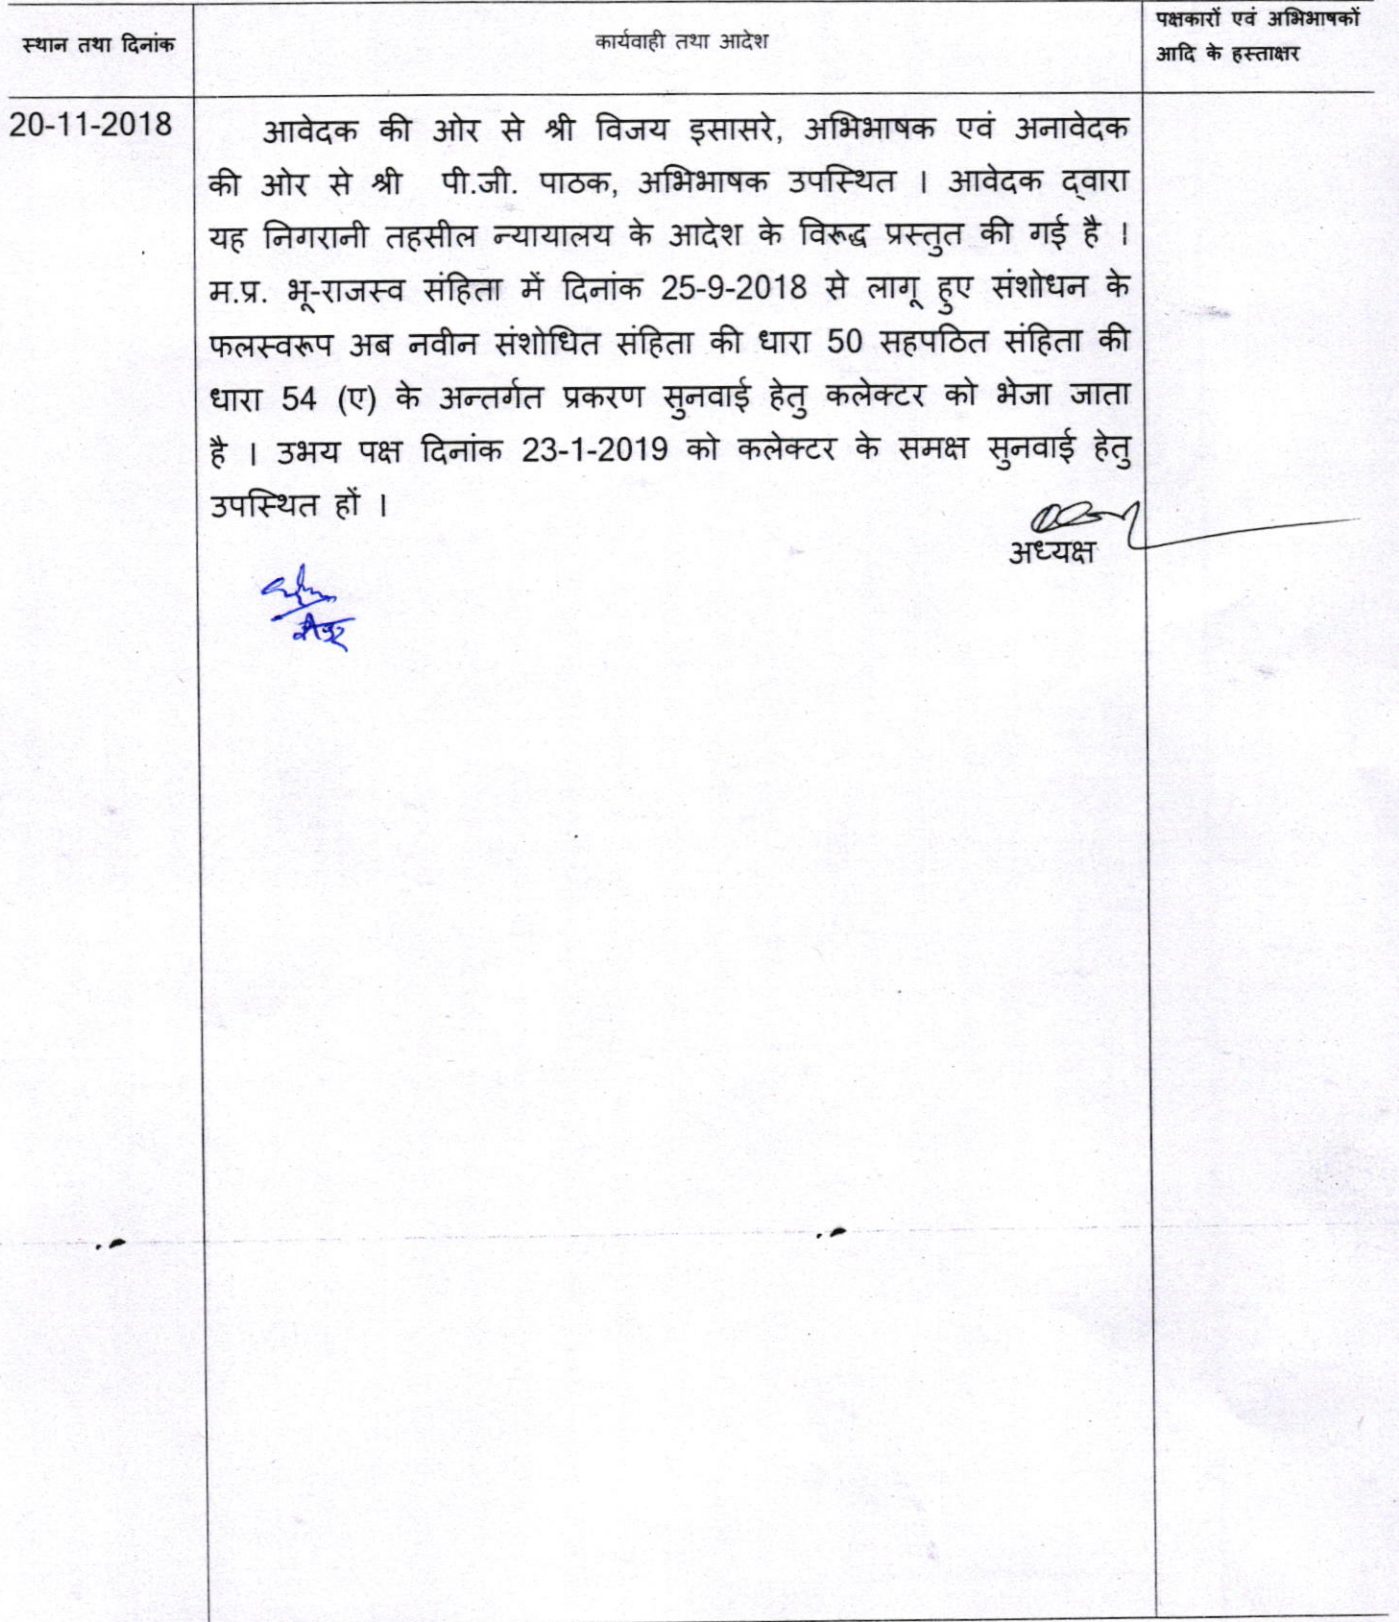 स्थान तथा दिनांक
कार्यवाही तथा आदेश
पक्षकारों एवं अभिभाषकों
आदि के हस्ताक्षर
20-11-2018
आवेदक की ओर से श्री विजय इसासरे, अभिभाषक एवं अनावेदक
की ओर से श्री पी.जी. पाठक, अभिभाषक उपस्थित । आवेदक द्वारा
यह निगरानी तहसील न्यायालय के आदेश के विरूद्ध प्रस्तुत की गई है ।
म.प्र. भू-राजस्व संहिता में दिनांक 25-9-2018 से लागू हुए संशोधन के
फलस्वरूप अब नवीन संशोधित संहिता की धारा 50 सहपठित संहिता की
धारा 54 (ए) के अन्तर्गत प्रकरण सुनवाई हेतु कलेक्टर को भेजा जाता
है । उभय पक्ष दिनांक 23-1-2019 को कलेक्टर के समक्ष सुनवाई हेतु
उपस्थित हों ।
अध्यक्ष